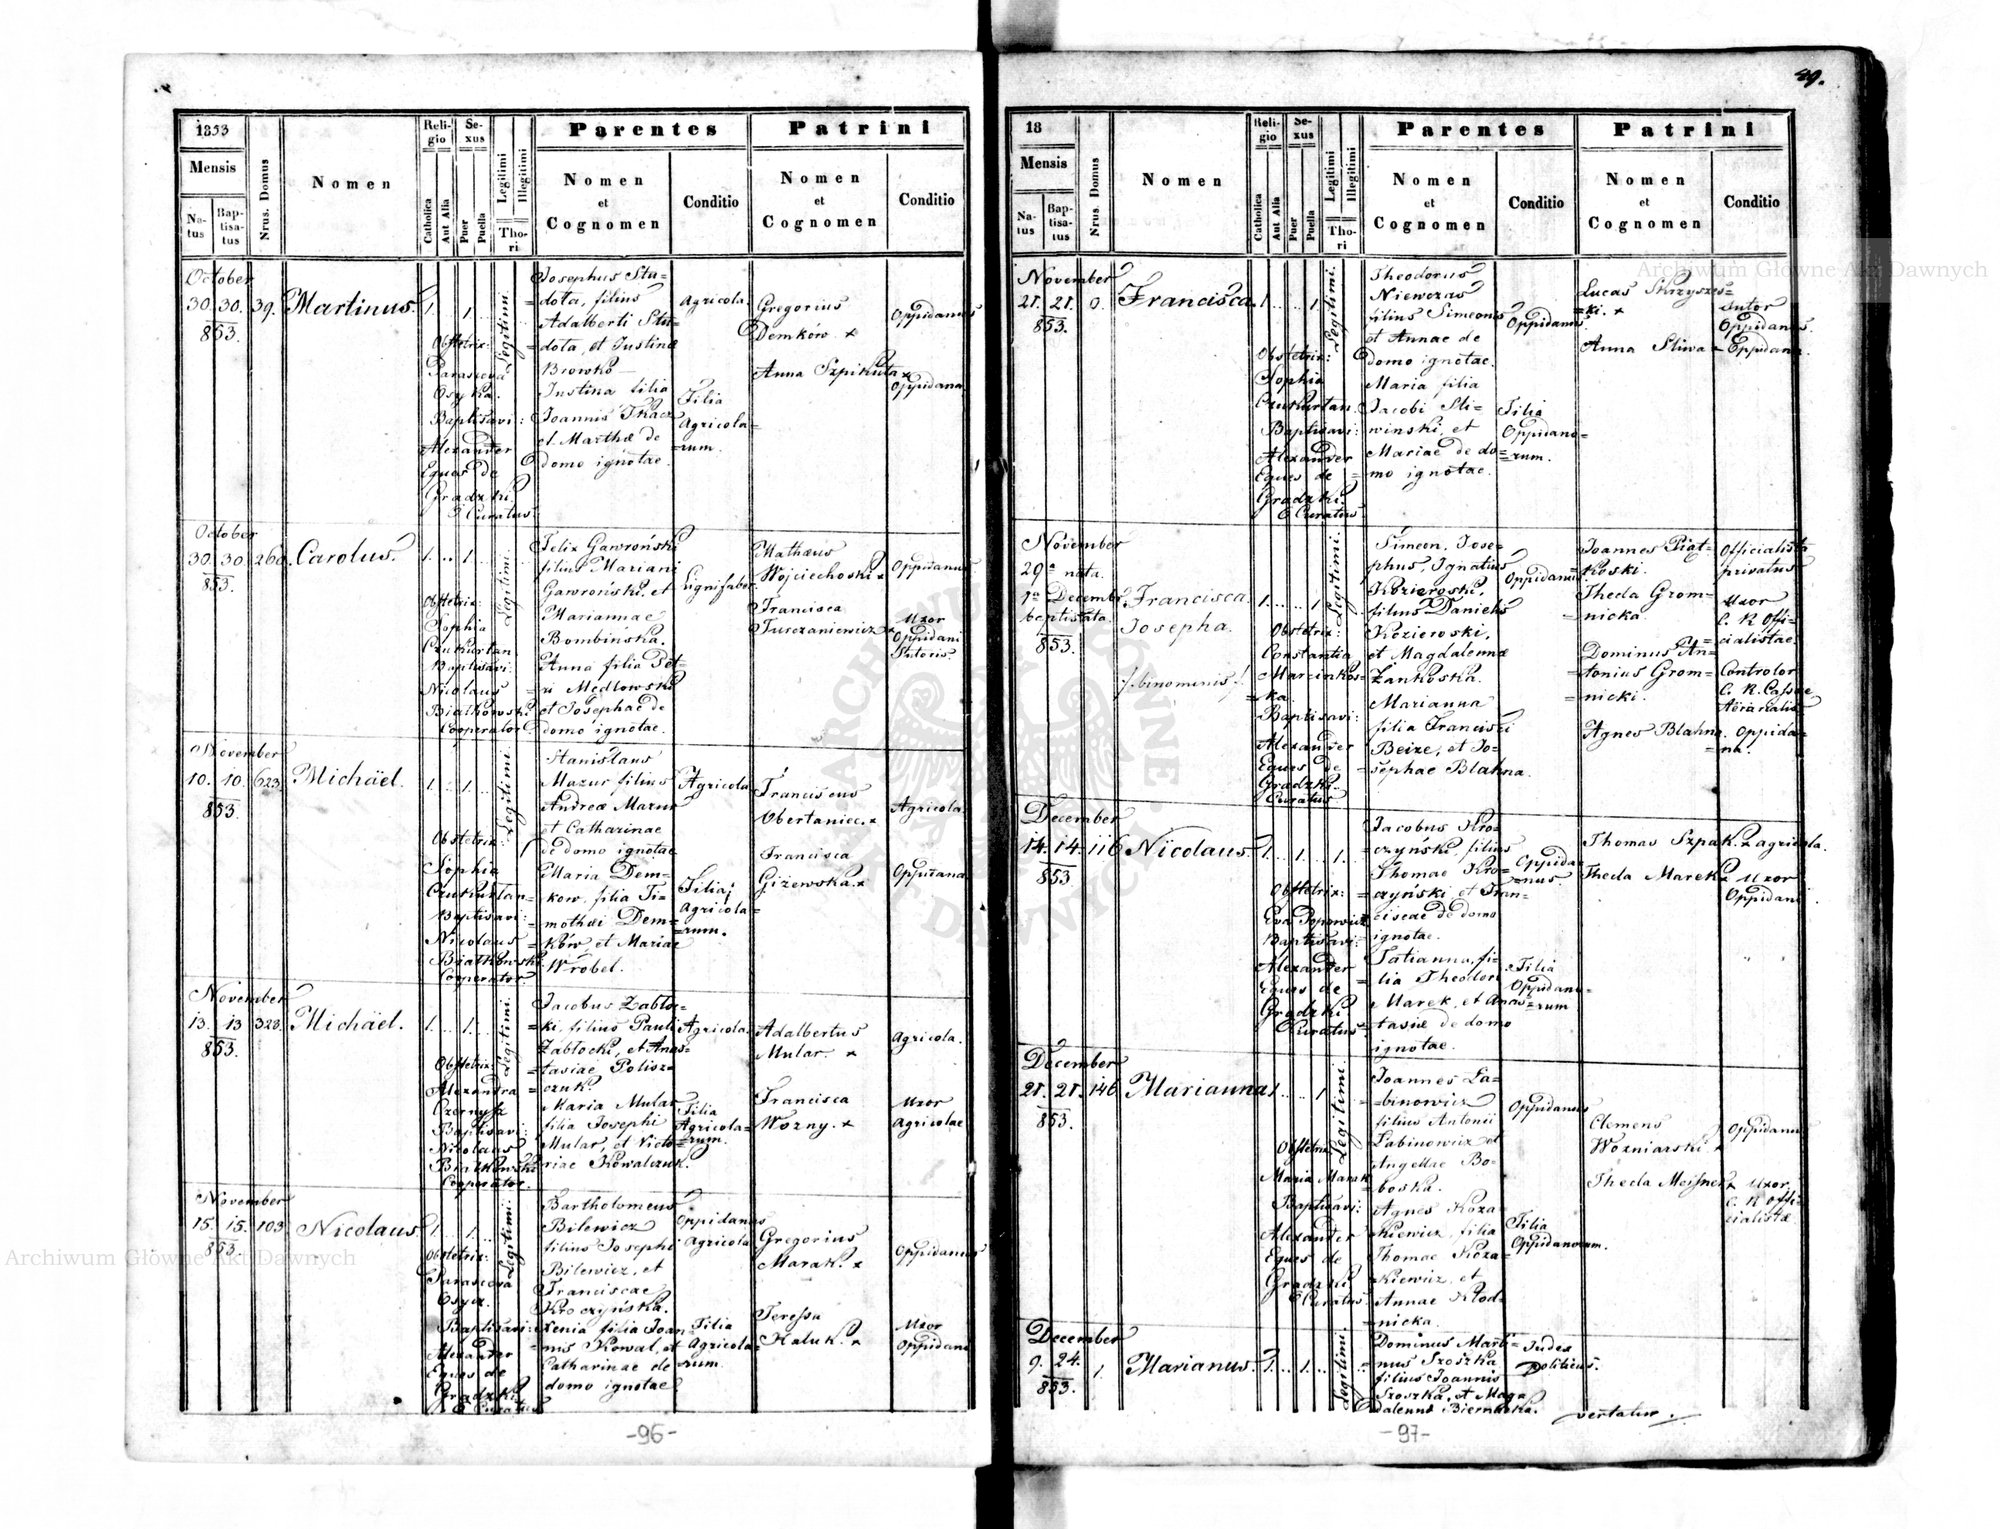 89.
1853
Mensis
Natus
Baptisatus
Nrus. Domus
Nomen
Religio
Catholica
Aut Alia
Sexus
Puer
Puella
Legitimi
Illegitimi
Thori
Parentes
Nomen
et
Cognomen
Conditio
Patrini
Nomen
et
Cognomen
Conditio
October
30. 30. 39. Martinus. 1. 1.
853.
Legitimi.
Obstetrix:
Parascevia
Osyka.
Baptisavi:
Alexander
Eques de
Gradzki.
Curatus.
Josephus Sta=
dota, filius
Adalberti Sta=
dota, et Justinæ
Browko
Justina filia
Joannis Tkacz
et Marthæ de
domo ignotae.
Agricola.
Filia
Agricola=
=rum.
Gregorius
Demków. x
Anna Szpikuta x
Oppidanus
Oppidana.
October
30. 30. 260. Carolus. 1. 1.
853.
Legitimi.
Obstetrix:
Sophia
Czukurtan.
Baptisavi:
Nicolaus
Białkowski
Cooperator
Felix Gawroński
filius Mariani
Gawroński, et
Mariannae
Bombinska.
Anna filia Pet=
ri Medlowski
et Josephae de
domo ignotae.
Lignifaber
Mathæus
Wojciechoski x
Francisca
Turczaniewicz x
Oppidanus.
Uxor
Oppidani
Sutoris.
November
10. 10. 623. Michäel. 1. 1.
853.
Legitimi.
Obstetrix:
Sophia
Czukurtan=
Baptisavi:
Nicolaus
Białkowski
Cooperator
Stanislaus
Mazur filius
Andreæ Mazur
et Catharinae
de domo ignotae
Maria Dem=
kow, filia Ti=
mothæi Dem=
ków, et Mariae
Wróbel.
Agricola
Filia
Agricola=
=rum.
Franciscus
Obertaniec. x
Francisca
Giżewska. x
Agricola.
Oppidana.
November
13. 13 328. Michäel. 1. 1.
853.
Legitimi.
Obstetrix:
Alexandra
Czernysz
Baptisavi:
Nicolaus
Białkowski
Cooperator.
Jacobus Zabłoc=
ki, filius Pauli
Zabłocki, et Anas=
tasiae Polisz=
czuk.
Maria Mular
filia Josephi
Mular, et Victo=
riae Kowalczuk.
Agricola.
Filia
Agricola=
=rum.
Adalbertus
Mular. x
Francisca
Wozny. x
Agricola.
Uxor
Agricolae
November
15. 15. 103. Nicolaus. 1. 1.
853.
Legitimi.
Obstetrix:
Parascevia
Osyka.
Baptisavi:
Alexander
Eques de
Gradzki
Curatus
Bartholomeus
Bilewicz
filius Josephi
Bilewicz, et
Franciscae
Kroczyńska.
Xenia filia Joan=
nis Kowal, et
Catharinae de
domo ignotae
Oppidanus
Agricola
Filia
Agricola=
=rum
Gregorius
Marak. x
Teressa
Haluk. x
Oppidanus
Uxor
Oppidani
-96-
18
Mensis
Natus
Baptisatus
Nrus. Domus
Nomen
Religio
Catholica
Aut Alia
Sexus
Puer
Puella
Legitimi
Illegitimi
Thori
Parentes
Nomen
et
Cognomen
Conditio
Patrini
Nomen
et
Cognomen
Conditio
November
21. 21. 0. Francisca. 1. 1.
853.
Legitimi.
Obstetrix:
Sophia
Czukurtan.
Baptisavi:
Alexander
Eques de
Gradzki.
Curatus.
Theodorus
Niewczas
filius Simeonis
et Annae de
domo ignotae.
Maria filia
Jacobi Sli=
winski, et
Mariae de do=
mo ignotae.
Oppidanus
Filia
Oppidano=
=rum.
Lucas Skrzyszes=
=ki. x
Anna Sliwa x
Sutor
Oppidanus.
Oppidana.
November
29a nata.
1a December
baptisata.
853.
Francisca.
Josepha.
/.binominis./
1. 1.
Legitimi.
Obstetrix:
Constantia
Marcinkos=
=ka
Baptisavi:
Alexander
Eques de
Gradzki.
Curatus
Simeon, Jose=
phus, Ignatius
Kozieroski,
filius Danielis
Kozieroski,
et Magdalennæ
Zankoska.
Marianna
filia Francisci
Beize, et Jo=
sephae Blahna.
Oppidanus
Joannes Piąt=
koski.
Thecla Grom=
=nicka.
Dominus An=
tonius Grom=
=nicki.
Agnes Blahna.
Officialista
privatus
Uxor
C. R. Offi=
cialistae.
Controlor
C. R. Cassae
Aërarialis
Oppida=
na.
December
14. 14. 116 Nicolaus. 1. 1. 1.
853.
Obstetrix:
Eva Popowicz
Baptisavi:
Alexander
Eques de
Gradzki
Curatus.
Jacobus Kro=
czyński, filius
Thomae Kro=
czyński et Fran=
ciscae de domo
ignotae.
Tatianna, fi=
lia Theodori
Marek, et Anas=
tasiæ de domo
ignotae.
Oppida=
=nus.
Filia
Oppidano=
=rum
Thomas Szpak. x agricola.
Thecla Marek x
Uxor
Oppidani
December
21. 21. 146 Marianna 1. 1
853.
Legitimi.
Obstetrix:
Maria Marak
Baptisavi:
Alexander
Eques de
Gradzki
Curatus.
Joannes La=
=binowicz
filius Antonii
Labinowicz et
Angellae Bo=
boska.
Agnes Koza=
kiewicz, filia
Thomae Koza=
kiewicz, et
Annae Kłod=
nicka.
Oppidanus
Filia
Oppidanorum.
Clemens
Wozniarski. x
Thecla Meisner x
Oppidanus
Uxor
C. R. Offi=
cialistæ
December
9. 24. 1. Marianus. 1. 1.
853.
Legitimi.
Dominus Marti=
nus Szoszka
filius Joannis
Szoszka, et Mag=
dalennæ Biernacka.
Judex
Politicus.
vertatur.
-97-
Archiwum Główne Akt Dawnych
Archiwum Główne Akt Dawnych
ARCHIWUM GŁÓWNE AKT DAWNYCH